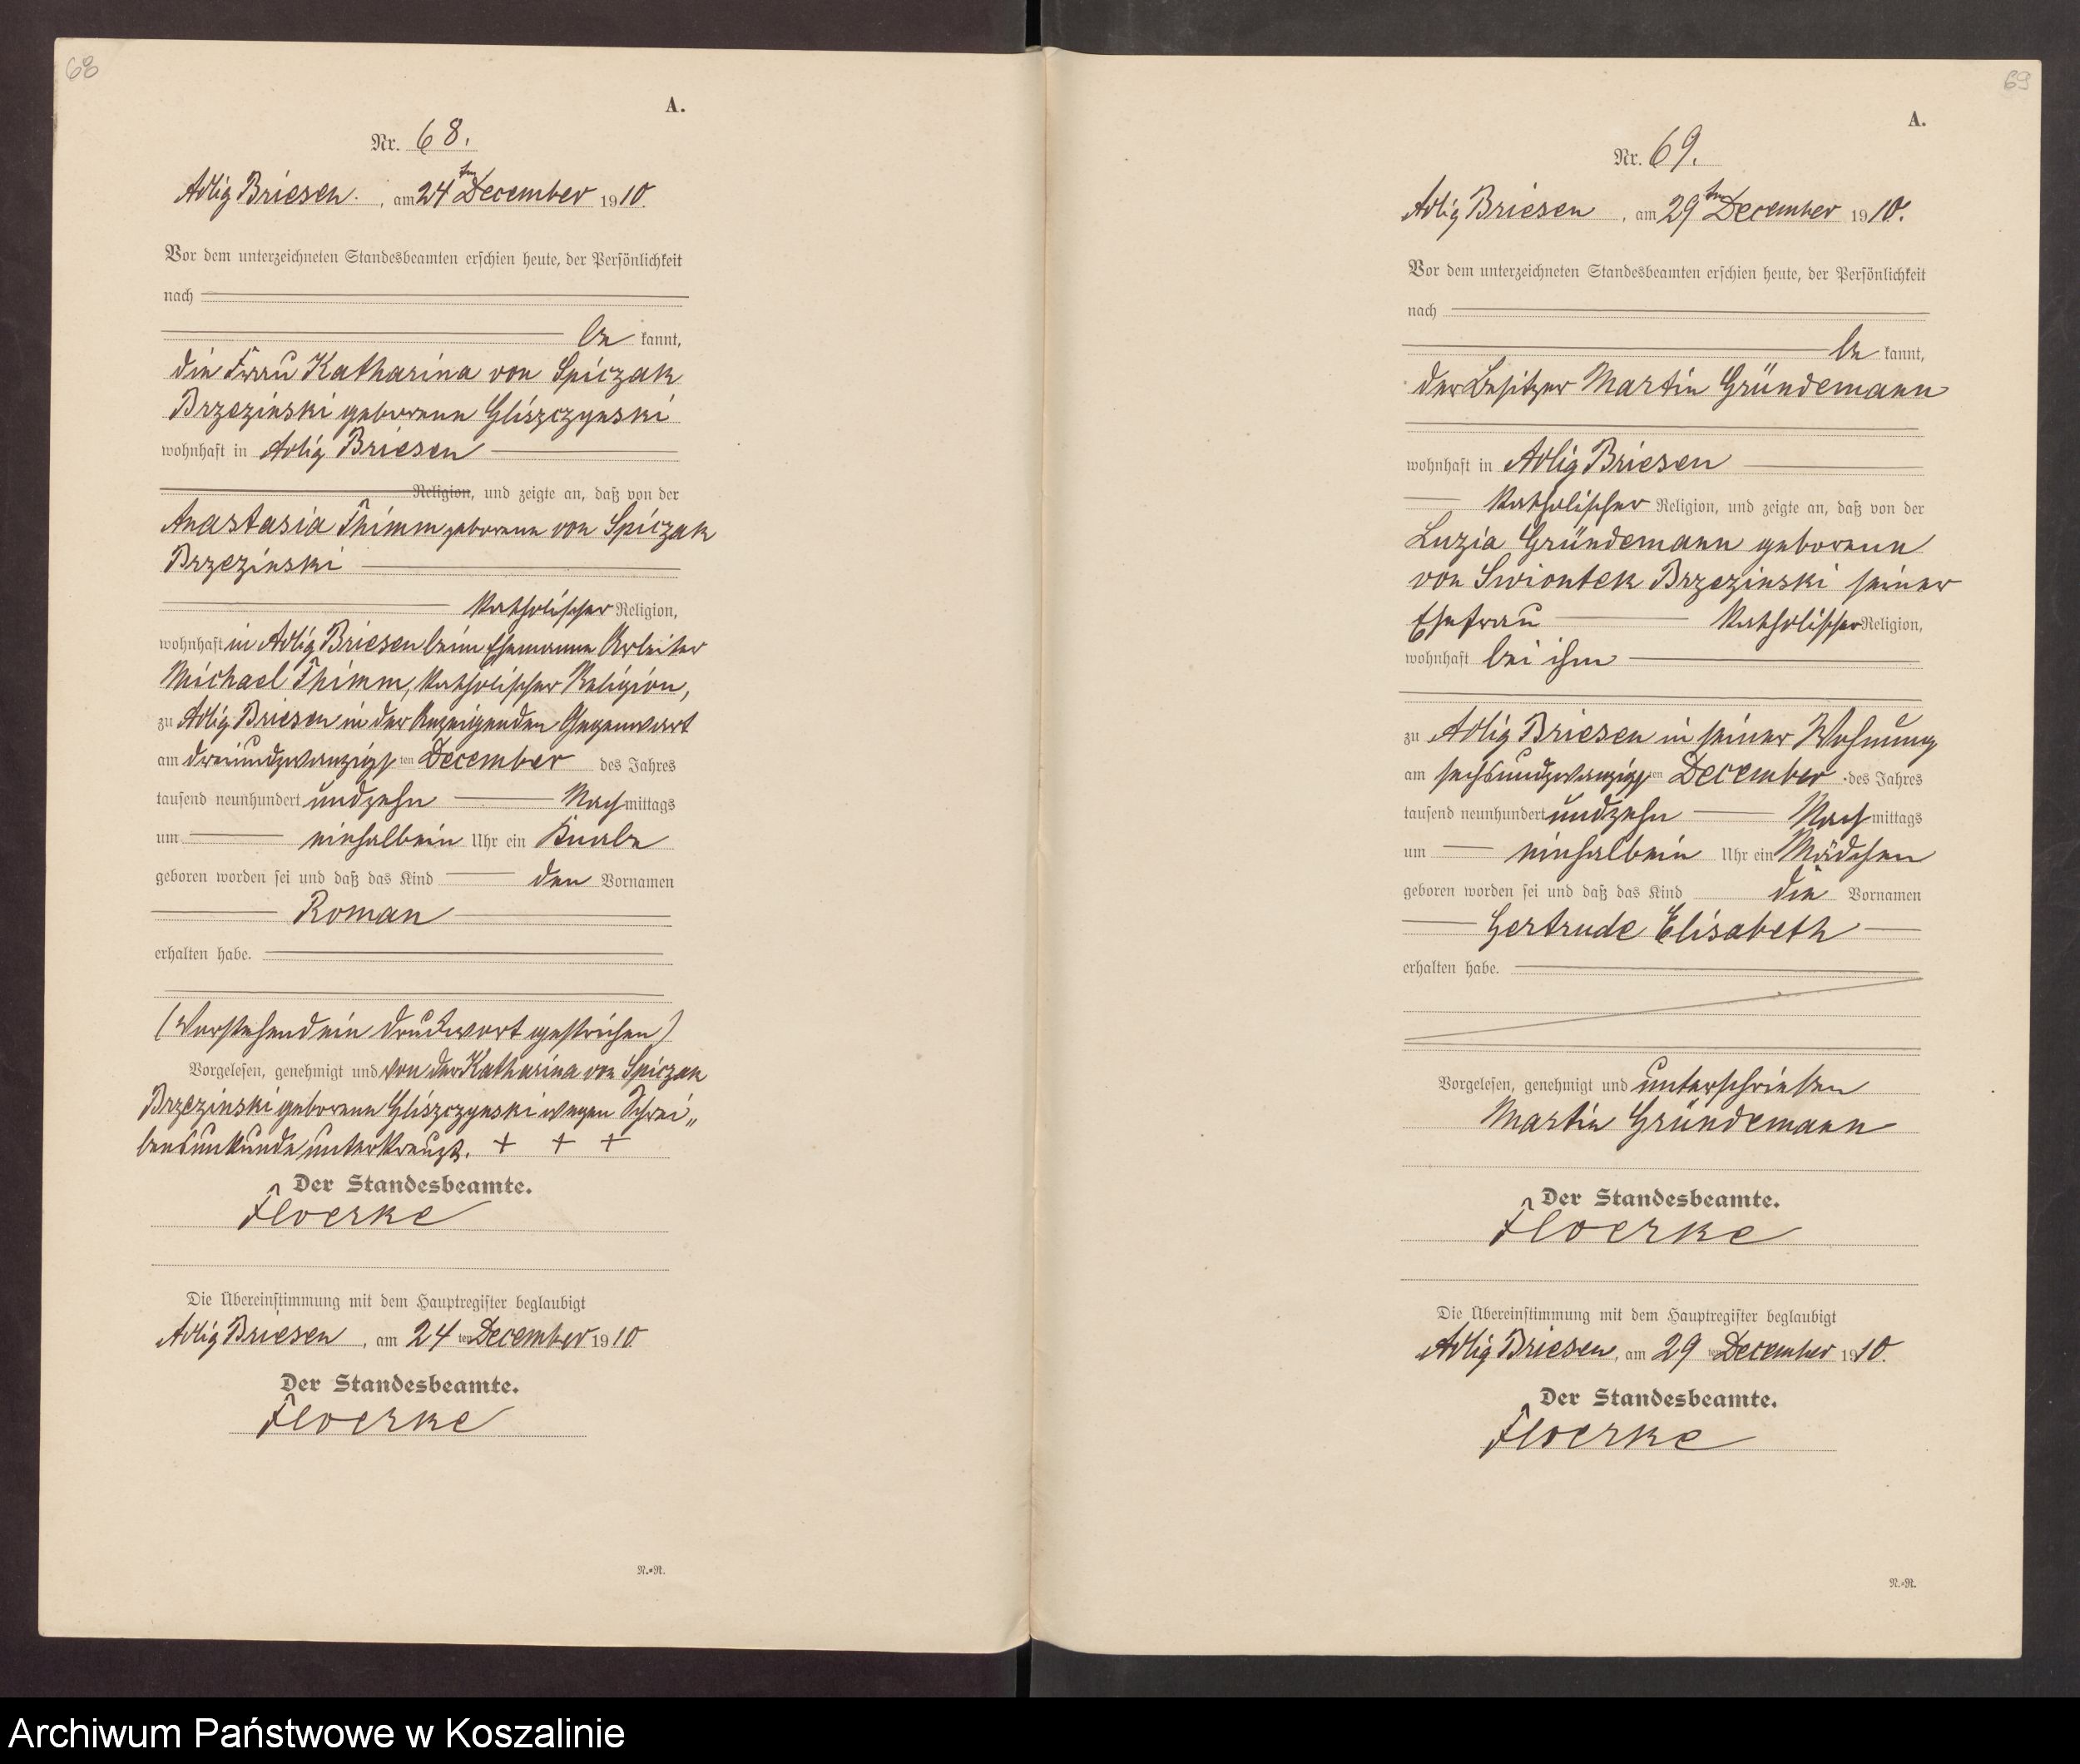 68
A.
Nr. 68.
Adlig Briesen. , am 24ten December 1910.
Vor dem unterzeichneten Standesbeamten erschien heute, der Persönlichkeit
nach
be kannt,
die Frau Katharina von Spiczak
Brzezinski geborene Gliszczynski
wohnhaft in Adlig Briesen
Religion, und zeigte an, daß von der
Anastasia Thimm geborene von Spiczak
Brzezinski
katholischer Religion,
wohnhaft in Adlig Briesen beim Ehemanne Arbeiter
Michael Thimm, katholischer Religion,
zu Adlig Briesen in der Anzeigenden Gegenwart
am dreiundzwanzigsten December des Jahres
tausend neunhundert undzehn Nachmittags
um einhalbein Uhr ein Knabe
geboren worden sei und daß das Kind den Vornamen
Roman
erhalten habe.
(Vorstehend ein Druckwort gestrichen)
Vorgelesen, genehmigt und von der Katharina von Spiczak
Brzezinski geborene Gliszczynski wegen Schrei„
bensunkunde unterkreuzt. + + +
Der Standesbeamte.
Floerke
Die Übereinstimmung mit dem Hauptregister beglaubigt
Adlig Briesen , am 24 ten December 1910.
Der Standesbeamte.
Floerke
N.=R.
69
A.
Nr. 69.
Adlig Briesen , am 29ten December 1910.
Vor dem unterzeichneten Standesbeamten erschien heute, der Persönlichkeit
nach
be kannt,
der Besitzer Martin Gründemann
wohnhaft in Adlig Briesen
katholischer Religion, und zeigte an, daß von der
Luzia Gründemann geborene
von Swiontek Brzezinski seiner
Ehefrau katholischer Religion,
wohnhaft bei ihm
zu Adlig Briesen in seiner Wohnung
am sechsundzwanzigsten December des Jahres
tausend neunhundert undzehn Nachmittags
um einhalbein Uhr ein Mädchen
geboren worden sei und daß das Kind die Vornamen
Gertrude Elisabeth
erhalten habe.
Vorgelesen, genehmigt und unterschrieben
Martin Gründemann
Der Standesbeamte.
Floerke
Die Übereinstimmung mit dem Hauptregister beglaubigt
Adlig Briesen, am 29 ten December 1910.
Der Standesbeamte.
Floerke
N.=R.
Archiwum Państwowe w Koszalinie